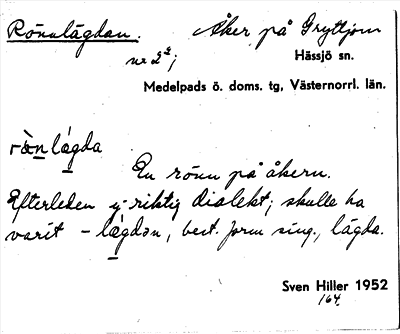 Rönnlägdan. Åker på Gryttjom
nr 2²; Hässjö sn.
Medelpads ö. doms. tg, Västernorrl. län.
rön lägda
En rönn på åkern.
Efterleden ej riktig dialekt; skulle ha
varit – lägdən, best. form sing., lägda.
Sven Hiller 1952
164.